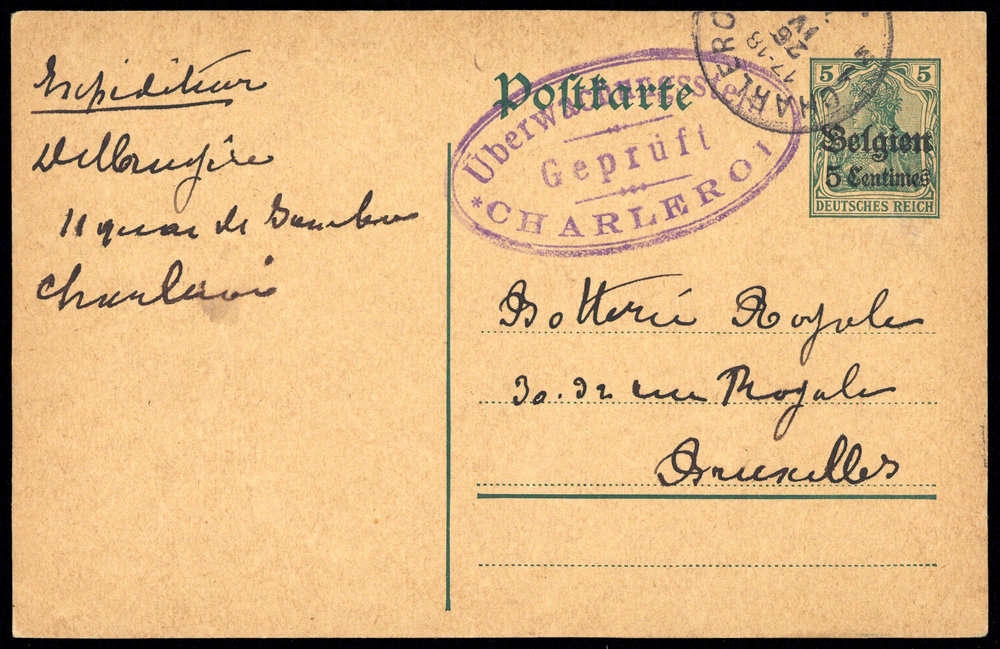 Expéditeur
Delbruyère
11 quai de Sambre
Charleroi
Postkarte
Überwachungsstelle
Geprüft
* CHARLEROI
CHARLEROI
17-18
26
IV
5 5
Belgien
5 Centimes
DEUTSCHES REICH
Botterie Royale
30.32 rue Royale
Bruxelles